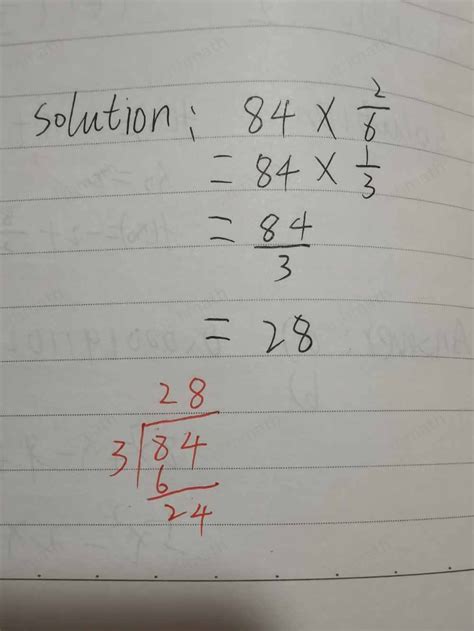 solution: 84 × 2/6
= 84 × 1/3
= 84/3
= 28
28
3 84
6
24